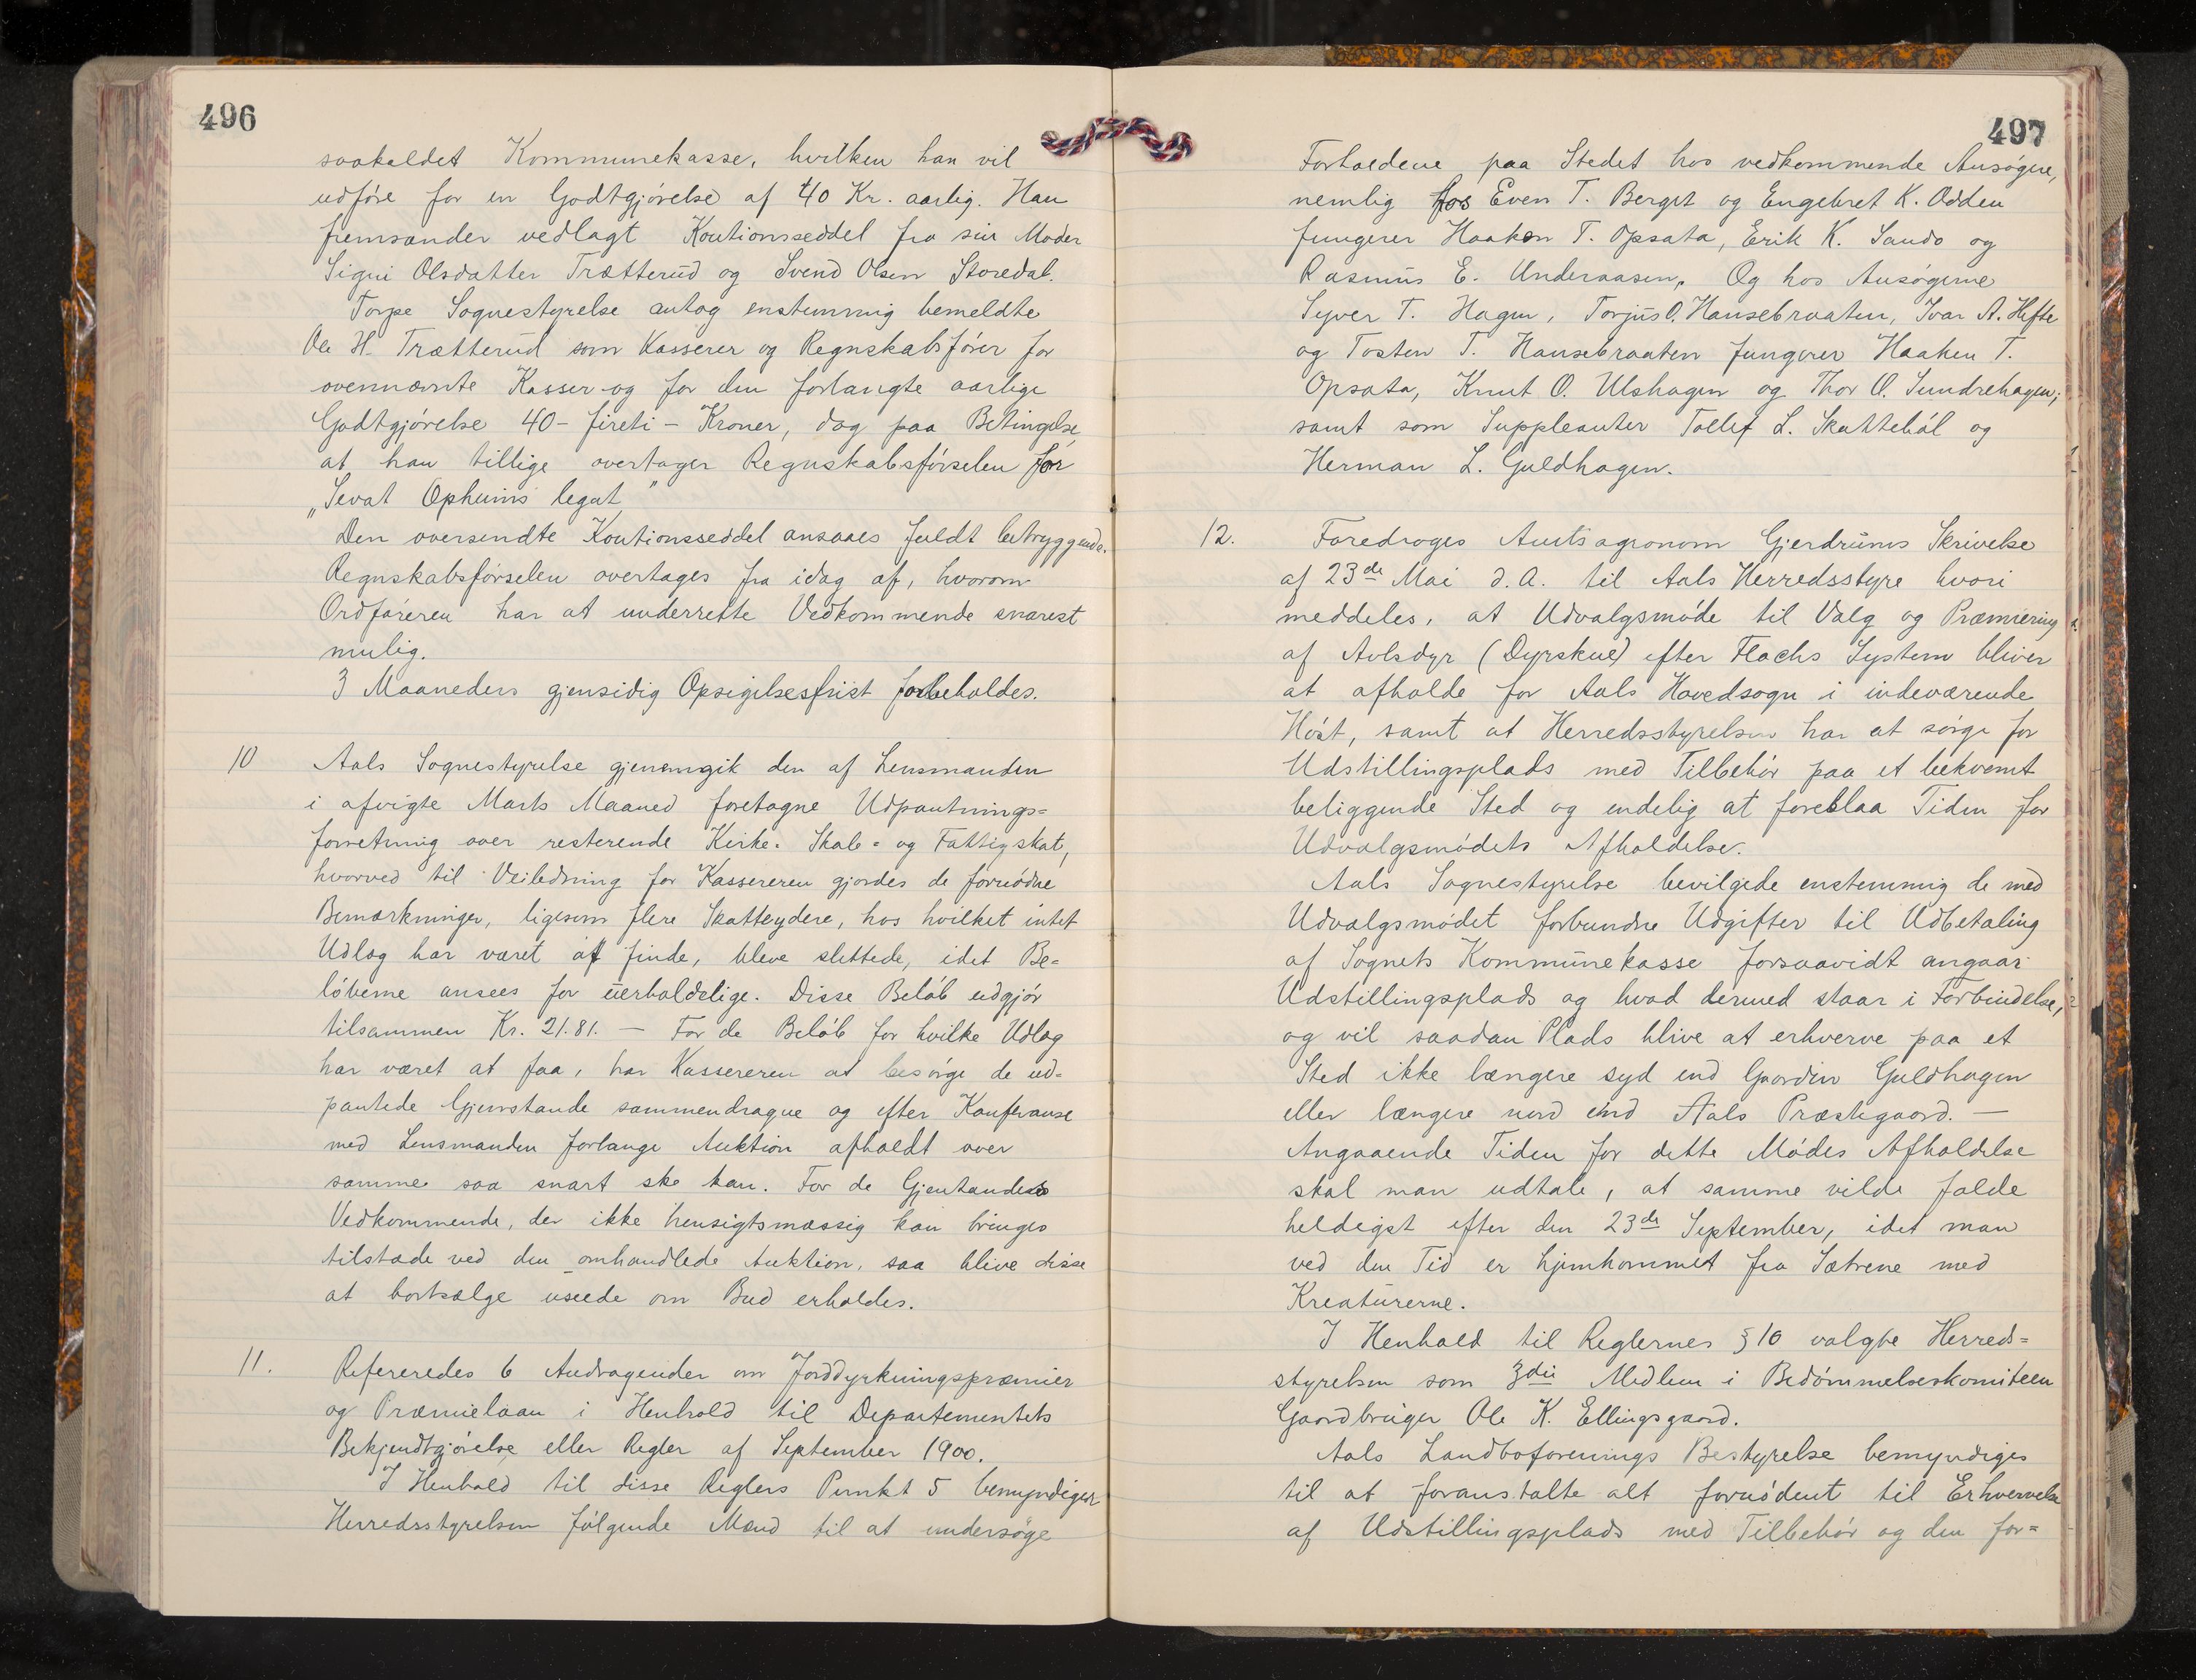 496
saakaldet Kommunekasse, hvilken han vil
udføre for en Godtgjørelse af 40 Kr. aarlig. Han
fremsender vedlagt Kautionsseddel fra sin Moder
Signi Olsdatter Trætterud og Svend Olsen Storedal.
Torpe Sognestyrelse antog enstemmig bemeldte
Ole H. Trætterud som Kasserer og Regnskabsfører for
ovennævnte Kasser og for den forlangte aarlige
Godtgjørelse 40 - fireti - Kroner, dog paa Betingelse
at han tillige overtager Regnskabsførselen for
„Sevat Ophuims legat"
Den oversendte Kautionsseddel ansaaes fuldt betryggende.
Regnskabsførselen overtages fra idag af, hvorom
Ordføreren har at underrette Vedkommende snarest
mulig.
3 Maaneders gjensidig Opsigelsesfrist forbeholdes.
10 Aals Sognestyrelse gjennemgik den af Lensmanden
i afvigte Marts Maaned foretagne Udpantnings=
forretning over resterende Kirke- Skole= og Fattigskat,
hvorved til Veiledning for Kassereren gjordes de fornødne
Bemærkninger, ligesom flere Skatteydere, hos hvilket intet
Udlæg har været at finde, bleve slettede, idet Be=
løbene ansees for uerholdelige. Disse Beløb udgjør
tilsammen Kr. 21.81. — For de Beløb for hvilke Udlæg
har været at faa, har Kassereren at besørge de ud=
pantede Gjenstande sammendragne og efter Konferanse
med Lensmanden forlange Auktion afholdt over
samme saa snart ske kan. For de Gjentandes
Vedkommende, der ikke hensigtsmæssig kan bringes
tilstede ved den omhandlede Auktion, saa blive disse
at bortsælge useede om Bud erholdes.
11. Refereredes 6 Andragender om Jorddyrkningspræmier
og Præmielaan i Henhold til Departementets
Bekjendtgjørelse eller Regler af September 1900.
I Henhold til disse Reglers Punkt 5 bemyndiger
Herredsstyrelsen følgende Mænd til at undersøge
497
Forholdene paa Stedet hos vedkommende Ansøgere,
nemlig hos Even T. Berget og Engebret K. Odden
fungerer Haakon T. Opsata, Erik K. Sando og
Rasmus E. Underaasen, Og hos Ansøgerne
Syver T. Hagen, Torjus O. Hansebraaten, Ivar A. Hefte
og Tosten T. Hansebraaten fungerer Haaken T.
Opsata, Knut O. Ulshagen og Thor O. Sundrehagen,
samt som Suppleanter Tollef L. Skattebøl og
Herman L. Guldhagen.
12. Foredroges Amtsagronom Gjerdrums Skrivelse
af 23de Mai d.A. til Aals Herredsstyre hvori
meddeles, at Udvalgsmøde til Valg og Præmiering
af Avlsdyr (Dyrskue) efter Flachs System bliver
at afholde for Aals Hovedsogn i indeværende
Høst, samt at Herredsstyrelsen har at sørge for
Udstillingsplads med Tilbehør paa et bekvemt
beliggende Sted og endelig at foreslaa Tiden for
Udvalgsmødets Afholdelse.
Aals Sognestyrelse bevilgede enstemmig de med
Udvalgsmødet forbundne Udgifter til Udbetaling
af Sognets Kommunekasse forsaavidt angaar
Udstillingsplads og hvad dermed staar i Forbindelse,
og vil saadan Plads blive at erhverve paa et
Sted ikke længere syd end Gaarden Guldhagen
eller længere nord end Aals Præstegaard. —
Angaaende Tiden for dette Mødes Afholdelse
skal man udtale, at samme vilde falde
heldigst efter den 23de September, idet man
ved den Tid er hjemkommet fra Sætrene med
Kreaturerne.
I Henhold til Reglernes § 10 valgte Herreds=
styrelsen som 3die Medlem i Bedømmelseskomiteen
Gaardbruger Ole K. Ellingsgaard.
Aals Landboforenings Bestyrelse bemyndiges
til at foranstalte alt fornødent til Erhvervelse
af Udstillingsplads med Tilbehør og den for=